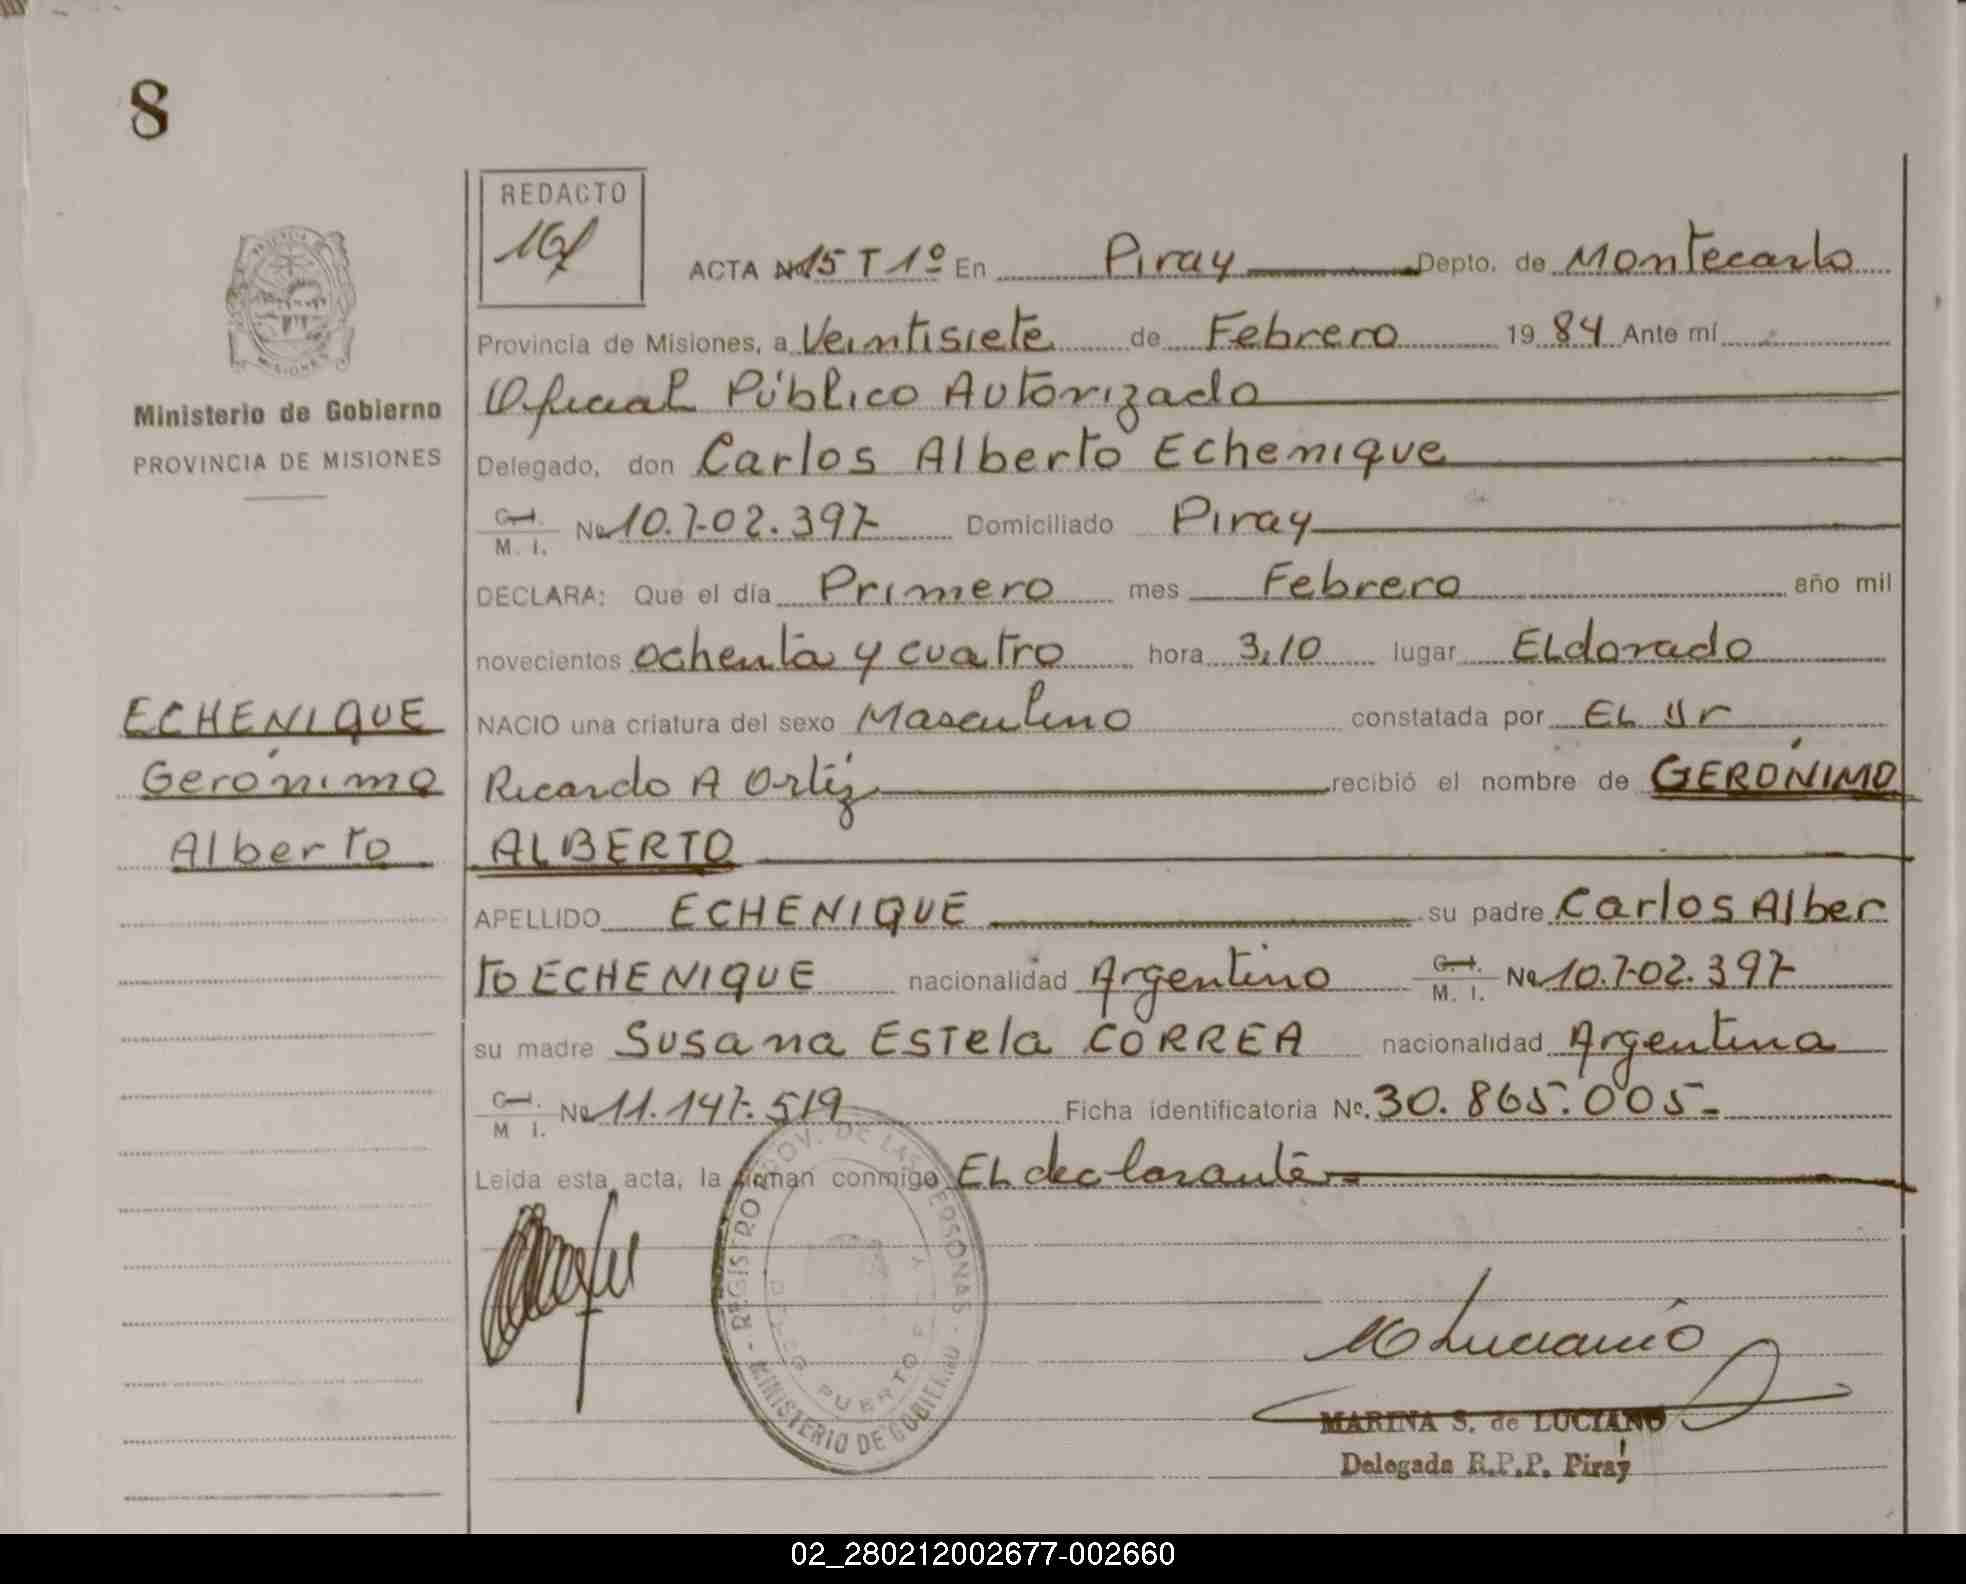 8
REDACTO
ACTA No 15 T 1º En Piray Depto. de Montecarlo
Provincia de Misiones, a Veintisiete de Febrero 1984 Ante mí
Oficial Público Autorizado
Ministerio de Gobierno
PROVINCIA DE MISIONES
Delegado, don Carlos Alberto Echenique
C. I. M. I. No 10.702.397 Domiciliado Piray
DECLARA: Que el día Primero mes Febrero año mil
novecientos ochenta y cuatro hora 3,10 lugar ELdorado
ECHENIQUE
Gerónimo
Alberto
NACIO una criatura del sexo Masculino constatada por EL Dr
Ricardo A Ortiz recibió el nombre de GERÓNIMO
ALBERTO
APELLIDO ECHENIQUE su padre Carlos Alber
to ECHENIQUE nacionalidad Argentino C. I. M. I. No 10.702.397
su madre Susana Estela CORREA nacionalidad Argentina
C. I. M I. No 11.147.519 Ficha identificatoria Nº. 30.865.005-
Leída esta acta, la firman conmigo EL declarante
REGISTRO PROV. DE LAS PERSONAS
MINISTERIO DE GOBIERNO
DELEG PUERTO
Luciano
MARINA S. de LUCIANO
Delegada R.P.P. Piray
02_280212002677-002660